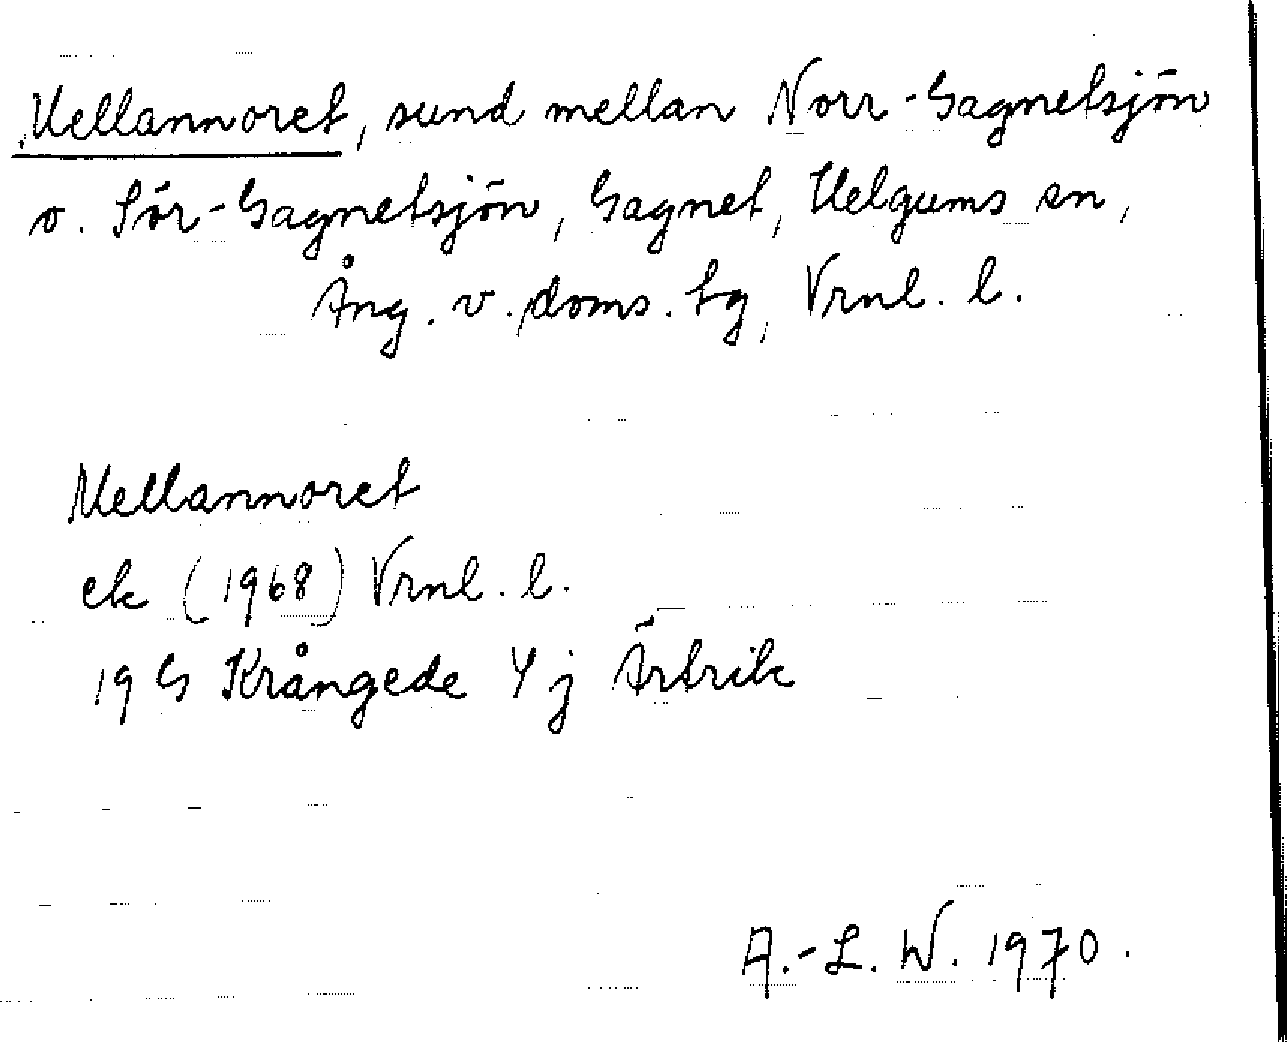 Mellannoret, sund mellan Norr-Gagnetsjön
o. Sör-Gagnetsjön, Gagnet, Helgums sn,
Ång. v. doms. tg, Vrnl. l.
Mellannoret
ek (1968) Vrnl. l.
19 G Krångede 4 j Ärtrik
A.-L. W. 1970.